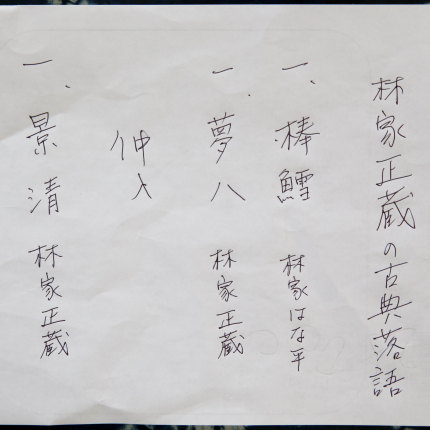 林家正蔵の古典落語
一、棒鱈 林家はな平
一、夢八 林家正蔵
仲入
一、景清 林家正蔵